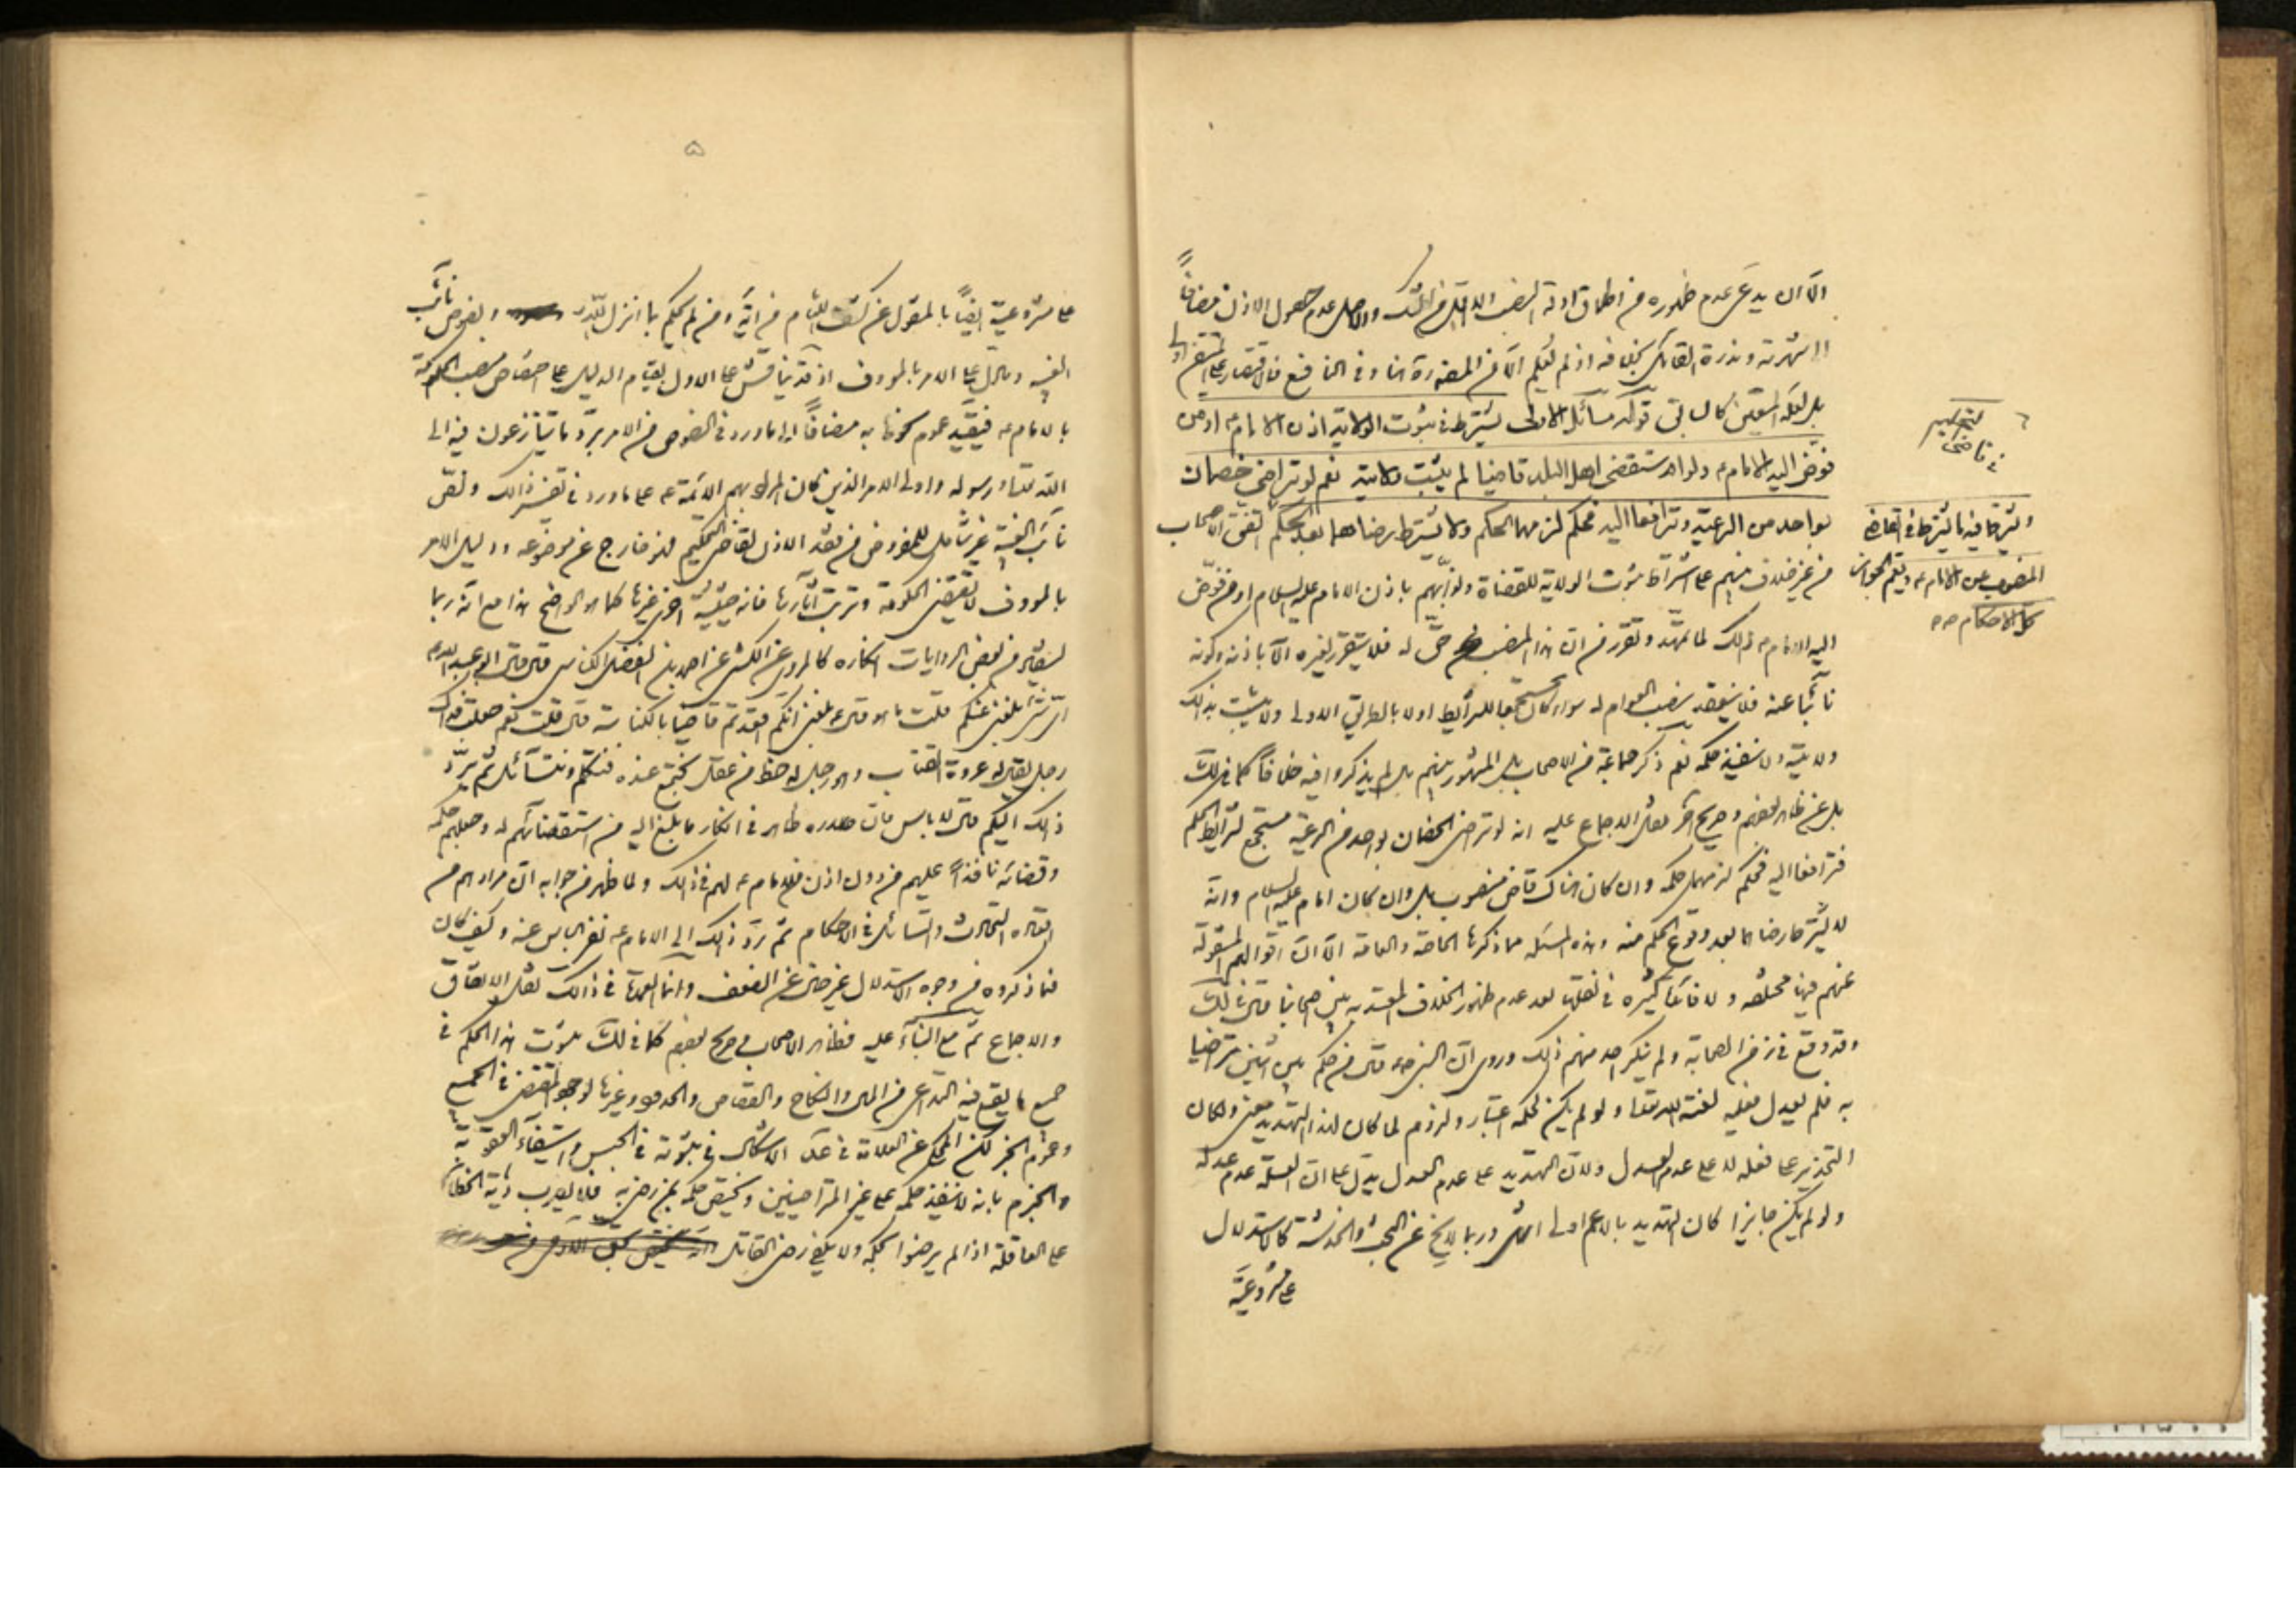 الا ان يدعى عدم ظهوره من اطلاق ادلة النصب او الشك والاصل عدم حصول الاذن مضافاً
الى شهرته وندرة القائل بخلافه اذ لم يحكم الا
بل لعله المتعين كالسابق قوله مسائل الاولى يشترط في ثبوت الولاية اذن الامام ع او من
فوّض اليه الامام ع ولو استقضى اهل البلد قاضيا لم يثبت ولايته نعم لو تراضى خصمان
بواحد من الرعية وترافعا اليه فحكم لزمهما الحكم ولا يشترط رضاهما بعد الحكم اتفق الاصحاب
من غير خلاف بينهم على اشتراط ثبوت الولاية للقضاة ونوابهم باذن الامام عليه السلام او من فوّض
اليه الامام ع ذلك لما تمهّد وتقرر من ان هذا المنصب حق له فلا يتقرر لغيره الا باذنه وكونه
نائباً عنه فلا ينعقد بنصب العوام له سواء كان مستجمعا للشرائط اولا بالطريق الاولى ولا يثبت بذلك
ولايته ولا ينفذ حكمه نعم ذكر جماعة من الاصحاب بل المشهور بينهم بل لم يذكروا فيه خلافاً كما في لك
بل عن ظاهر بعضهم وصريح اخر نقل الاجماع عليه انه لو تراضى الخصمان بواحد من الرعية مستجمع لشرائط الحكم
فترافعا اليه فحكم لزمهما حكمه وان كان هناك قاض منصوب بل وان كان امام عليه السلام وانه
لا يشترط رضاهما بعد وقوع الحكم منه وهذه المسئلة مما ذكرها الخاصة والعامة الا ان اقوالهم المنقولة
عنهم فيها مختلفة ولا فائدة كثيره في نقلها بعد عدم ظهور الخلاف المعتد به بين اصحابنا قال في لك
وقد وقع في زمن الصحابة ولم ينكر احد منهم ذلك وروى ان النبي ص قال من حكم بين اثنين تراضيا
به فلم يعدل فعليه لعنة الله تعالى ولو لم يكن لحكمه اعتبار ولزوم لما كان لهذا التهديد معنى ولكان
التحذير على فعله لا على عدم العدل ولان التهديد على عدم العدل يدل على ان العلة عدم عدله
ولو لم يكن جايزا كان التهديد بالاعم اولى انتهى وربما لا يخ عن البحث والخدشة كالاستدلال
على مشروعية
التحكيم
في قاضى
ويشترط فيه ما يشترط في القاضى
المنصوب عن الامام ع ويعم الجواز
كل الاحكام
۵
على مشروعية ايضاً بالمنقول عن كشف اللثام من اية ومن لم يحكم بما انزل الله وبعوض نائب
الغيبة وما دل على الامر بالمعروف اذ قد يناقش على الاول بقيام الدليل على اختصاص منصب الحكومة
بالامام ع فيقيد عموم كونها به مضافاً الى ما ورد في النصوص من الامر بردّ ما يتنازعون فيه الى
الله تعالى ورسوله واولى الامر الذين كان المراد بهم الائمة ع على ما ورد في تفسير ذلك ونصّ
نائب الغيبة غير شامل للمفروض من فقد الاذن لقاضى التحكيم فهو خارج عن موضوعه ودليل الامر
بالمعروف لا يقتضى الحكومة وترتب آثارها فانه حيثية اخرى غيرها كما هو الواضح هذا مع انه ربما
يستظهر من بعض الروايات انكاره كالمروى عن الكشى عن احمد بن الفضل الكناسى قال قال لى ابو عبد الله ع
اىّ شىء بلغنى عنكم قلت ما هو قال ع بلغنى انكم اقعدتم قاضيا بالكناسة قال قلت نعم جعلت فداك
رجل يقال له عروة القتات وهو رجل له حظ من عقل نجتمع عنده فنتكلم ونتسائل ثم يردّ
ذلك اليكم قال لا باس فان صدره ظاهر في انكار ما بلغ اليه من استقضائهم له وجعلهم حكمه
وقضائه نافذاً عليهم من دون اذن الامام ع لهم في ذلك ولما ظهر من جوابه ان مرادهم من
القعدة التحادث والتسائل في الاحكام ثم ردّ ذلك الى الامام ع نفى الباس عنه وكيف كان
فما ذكروه من وجوه الاستدلال غير خال عن الضعف وانما العمدة في ذلك نقل الاتفاق
والاجماع ثم مع البناء عليه فظاهر الاصحاب وصريح بعضهم كما في لك ثبوت هذا الحكم في
جميع ما يقع فيه التداعى من المال والنكاح والقصاص والحدود وغيرها لوجود المقتضى في الجميع
وعموم الخبر لكن المحكى عن العلامة في عد الاشكال في ثبوته في الحبس واستيفاء العقوبة
والجزم بانه لا ينفذ حكمه على غير المتراضيين ويختص حكمه بمن رضى به فلا يضرب دية الخطاء
على العاقلة اذا لم يرضوا بحكمه ولا يكفى رضى القاتل